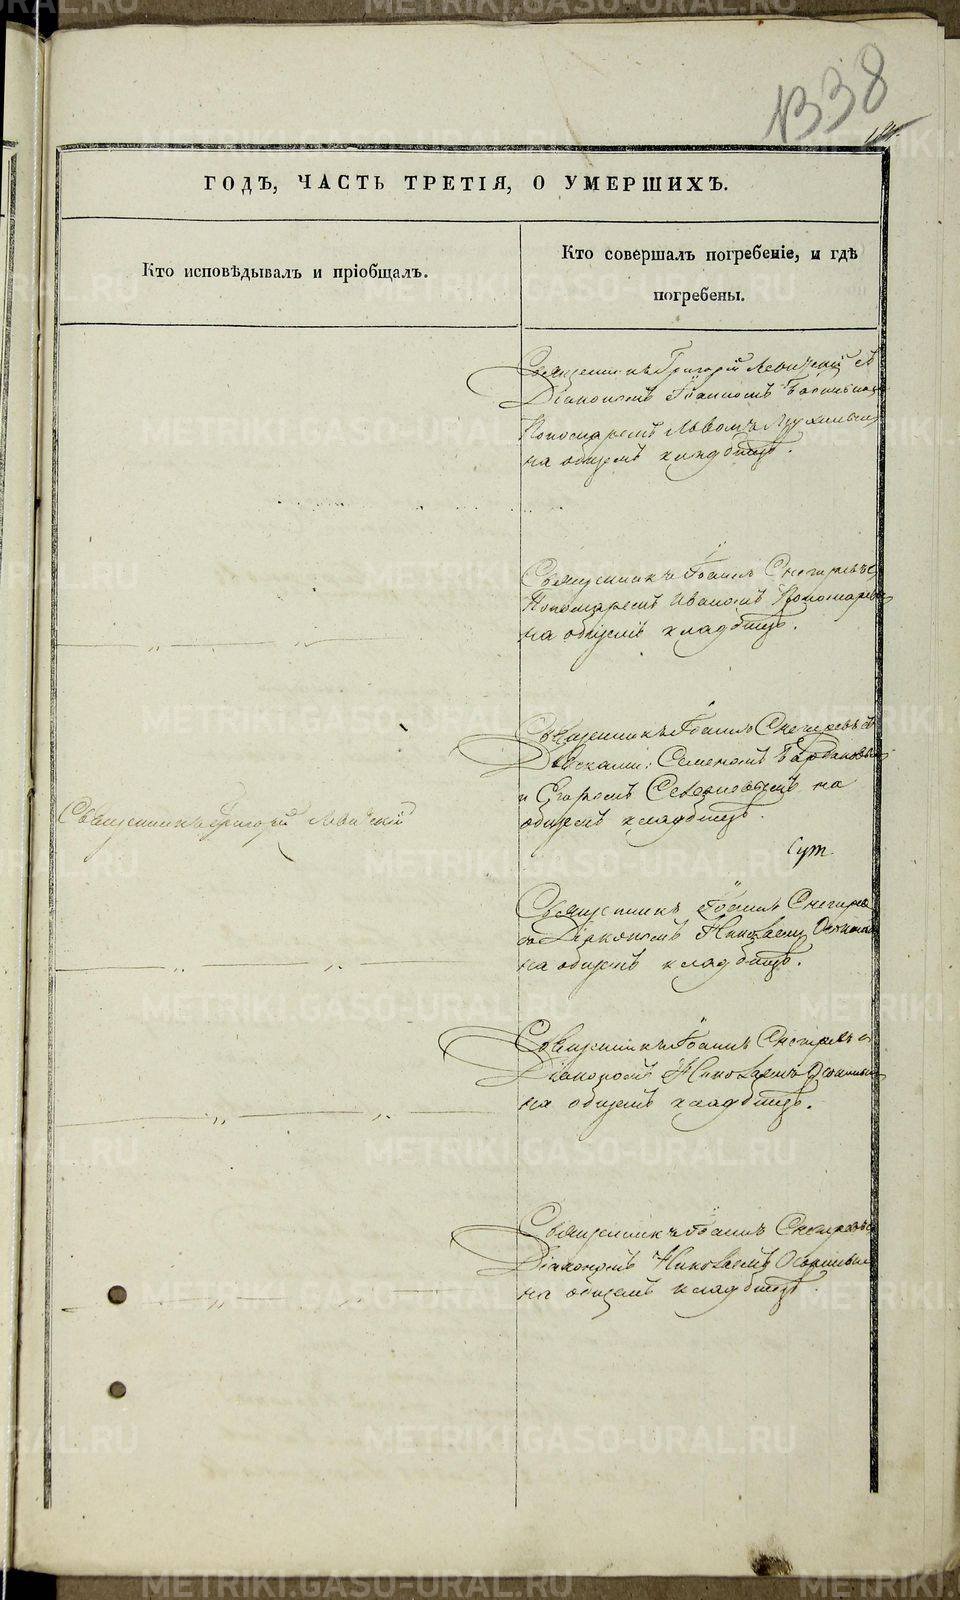 1338
ГОДЪ, ЧАСТЬ ТРЕТІЯ, О УМЕРШИХЪ.
Кто исповѣдывалъ и пріобщалъ.
Кто совершалъ погребеніе, и гдѣ
погребены.
Священникъ Григорій Левитскій съ
Діакономъ Іоанномъ
Пономаремъ Львомъ
на общемъ кладбищѣ.
Священникъ Іоаннъ Снегиревъ с
Пономаремъ Иваномъ Пономаревы
на общемъ кладбищѣ.
Священникъ Іоаннъ Снегиревъ съ
Дьячками: Семеномъ
и Егоромъ на
общемъ кладбищѣ.
Священникъ Григорій Левитскій
Священникъ Іоаннъ Снегирев
съ Діакономъ Николаемъ
на общемъ кладбищѣ.
Священникъ Іоаннъ Снегиревъ с
Діакономъ Николаемъ
на общемъ кладбищѣ.
Священникъ Іоаннъ Снегиревъ с
Діакономъ Николаемъ
на общемъ кладбищѣ.
METRIKI.GASO-URAL.RU